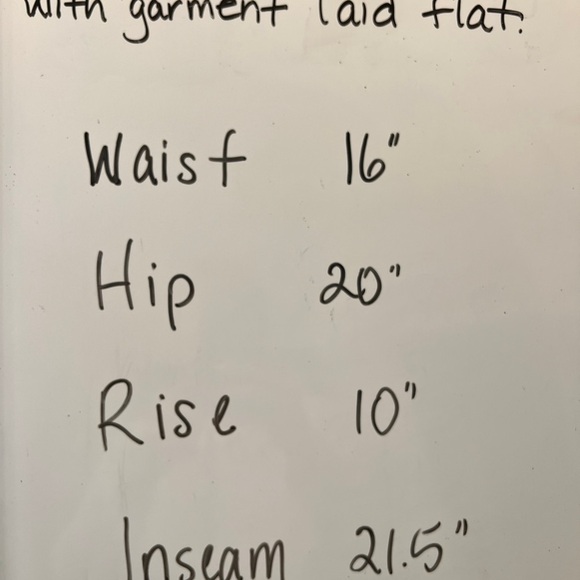 with garment laid flat.
Waist 16"
Hip 20"
Rise 10"
Inseam 21.5"